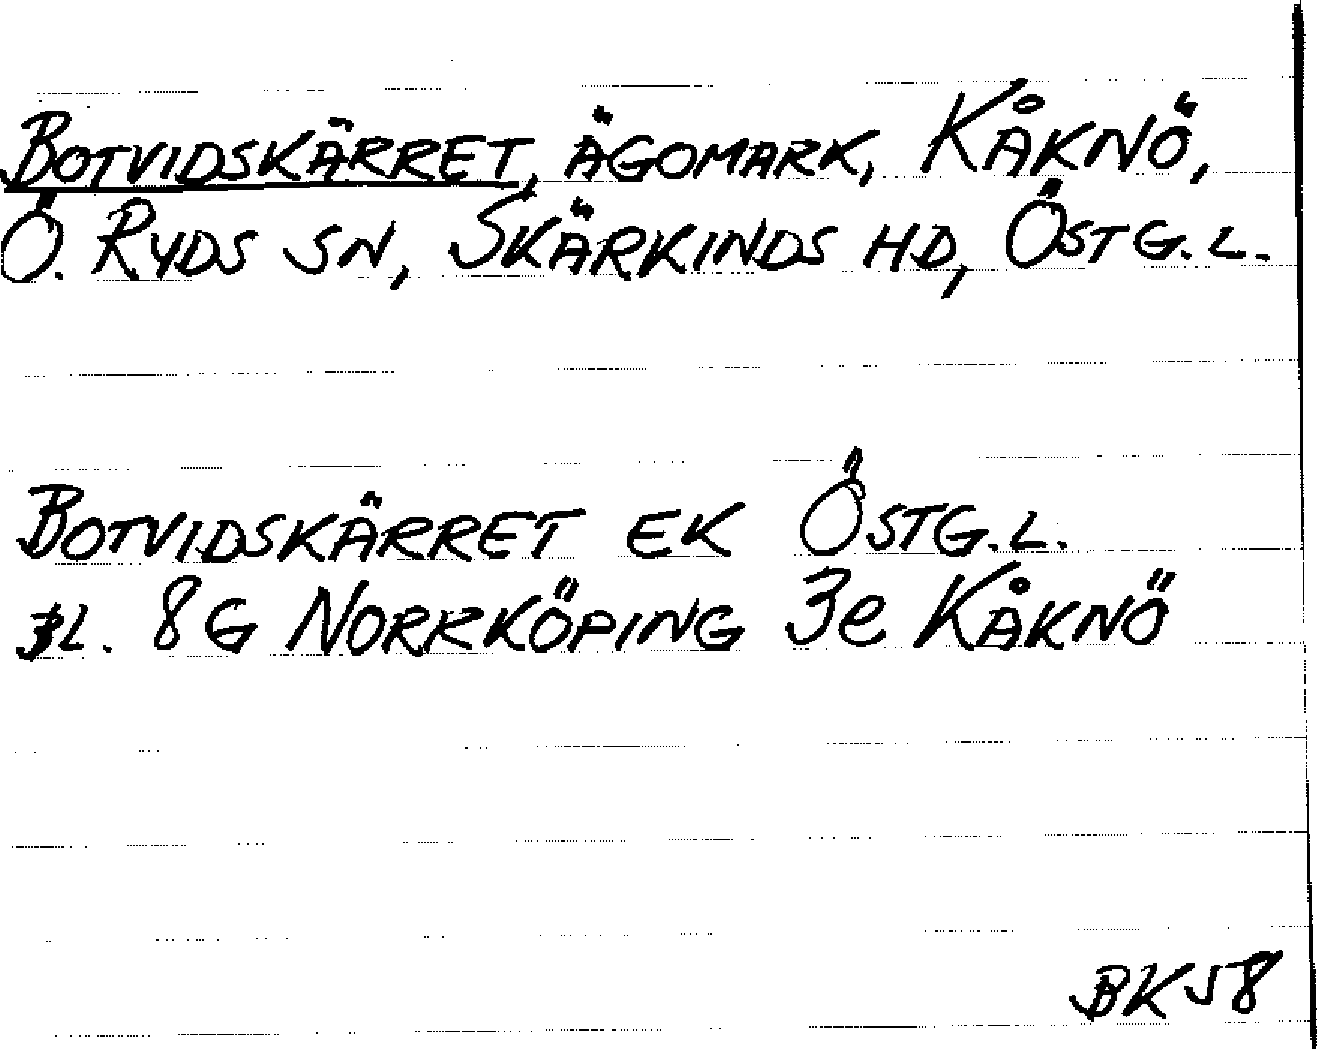 BOTVIDSKÄRRET, ÄGOMARK, KÅKNÖ,
Ö. RYDS SN, SKÄRKINDS HD, ÖSTG.L.
BOTVIDSKÄRRET EK ÖSTG.L.
BL. 8G NORRKÖPING 3e KÅKNÖ
BK 58